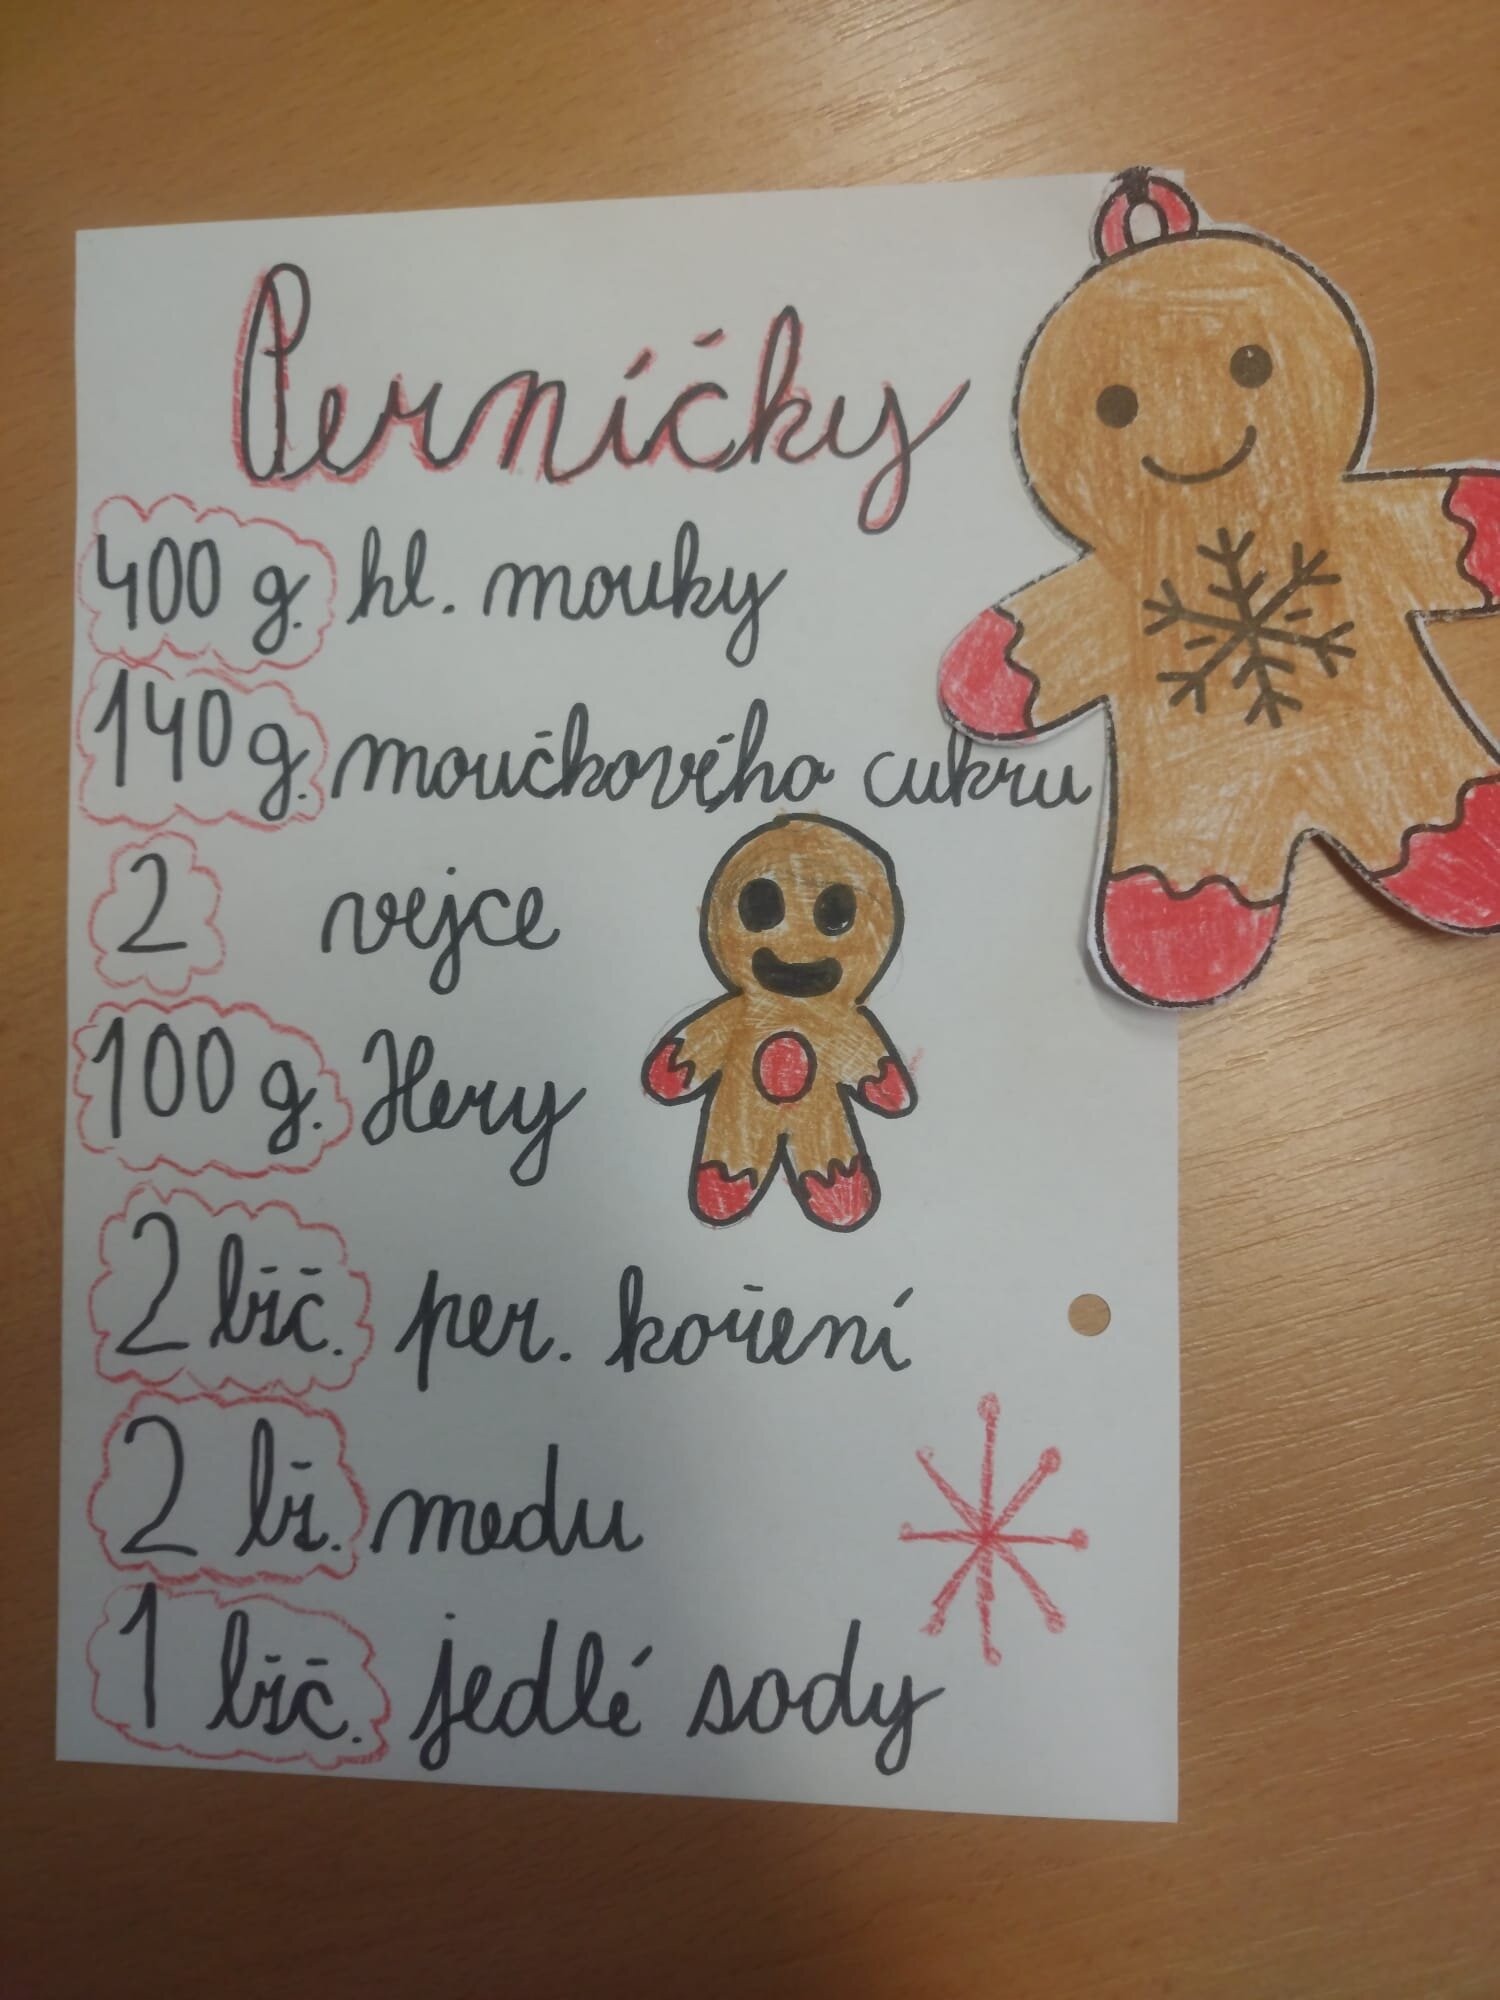 Perníčky
400 g. hl. mouky
140 g. moučkového cukru
2 vejce
100 g. Hery
2 lžič. per. koření
2 lž. medu
1 lžič. jedlé sody